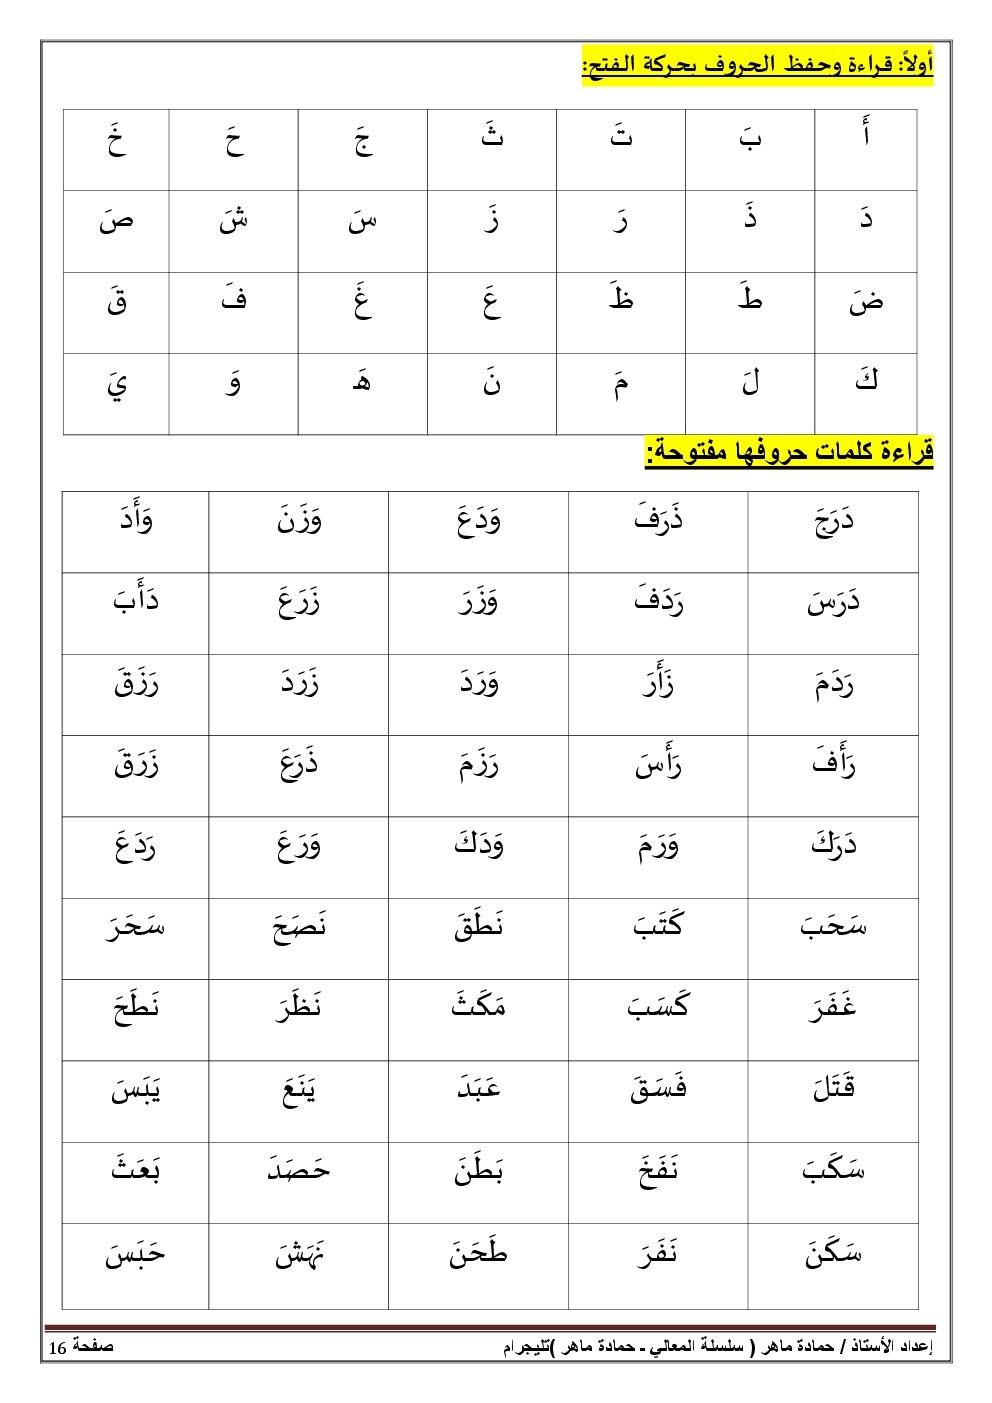 أولاً: قراءة وحفظ الحروف بحركة الفتح:
أَ بَ تَ ثَ جَ حَ خَ
دَ ذَ رَ زَ سَ شَ صَ
ضَ طَ ظَ عَ غَ فَ قَ
كَ لَ مَ نَ هَ وَ يَ
قراءة كلمات حروفها مفتوحة:
دَرَجَ ذَرَفَ وَدَعَ وَزَنَ وَأَدَ
دَرَسَ رَدَفَ وَزَرَ زَرَعَ دَأَبَ
رَدَمَ زَأَرَ وَرَدَ زَرَدَ رَزَقَ
رَأَفَ رَأَسَ رَزَمَ ذَرَعَ زَرَقَ
دَرَكَ وَرَمَ وَدَكَ وَرَعَ رَدَعَ
سَحَبَ كَتَبَ نَطَقَ نَصَحَ سَحَرَ
غَفَرَ كَسَبَ مَكَثَ نَظَرَ نَطَحَ
قَتَلَ فَسَقَ عَبَدَ يَنَعَ يَبَسَ
سَكَبَ نَفَخَ بَطَنَ حَصَدَ بَعَثَ
سَكَنَ نَفَرَ طَحَنَ نَهَشَ حَبَسَ
إعداد الأستاذ / حمادة ماهر ( سلسلة المعالي - حمادة ماهر )تليجرام صفحة 16